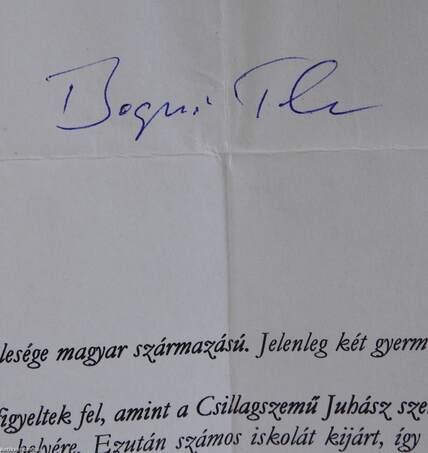 lesége magyar származású. Jelenleg két gyerm
figyeltek fel, amint a Csillagszemű Juhász sze
helyére. Ezután számos iskolát kijárt, így